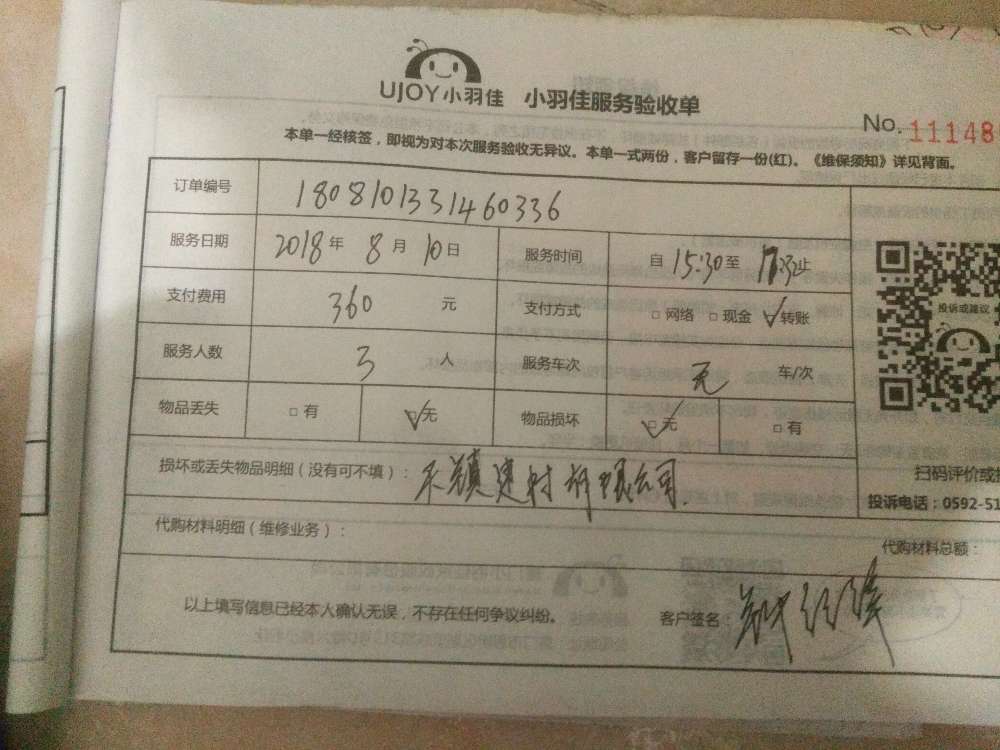 UJOY小羽佳 小羽佳服务验收单
No. 11148
本单一经核签，即视为对本次服务验收无异议。本单一式两份，客户留存一份(红)。《维保须知》详见背面。
订单编号 1808101331460336
服务日期 2018 年 8 月 10 日 服务时间 自 15:30 至 止
支付费用 360 元 支付方式 □网络 □现金 ☑转账
服务人数 3 人 服务车次 无 车/次
物品丢失 □有 ☑无 物品损坏 ☑无 □有
投诉或建议
扫码评价或
投诉电话：0592-51
损坏或丢失物品明细（没有可不填）： 建材有限公司
代购材料明细（维修业务）：
代购材料总额：
以上填写信息已经本人确认无误，不存在任何争议纠纷。 客户签名：